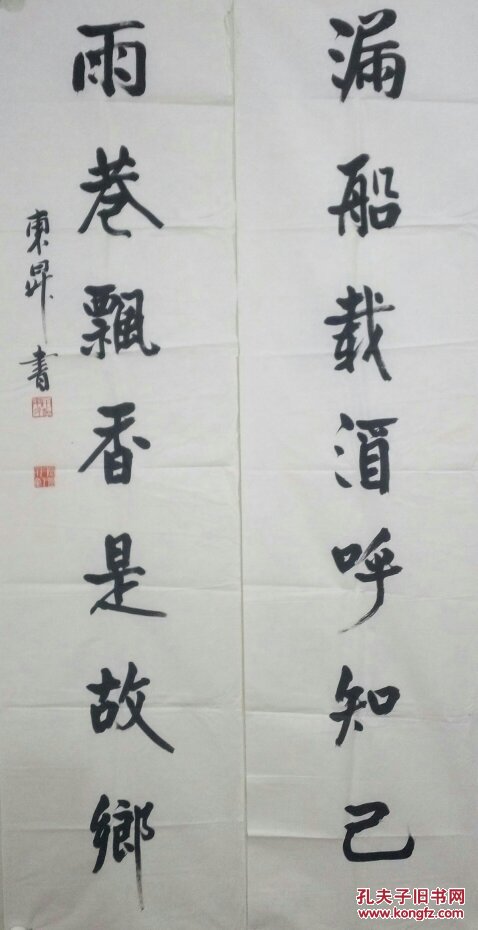 漏船载酒呼知己
雨巷飄香是故鄉
東昇書
孔夫子旧书网
www.kongfz.com